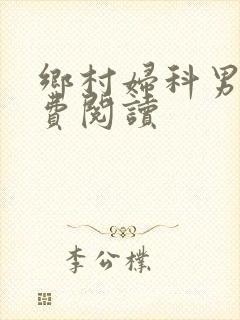 鄉村婦科男
費閱讀
李公樸